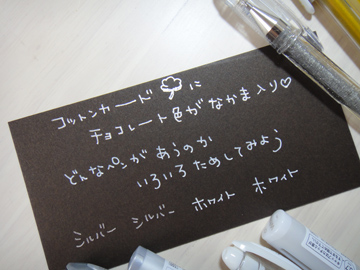 コットンカードに
チョコレート色がなかま入り♡
どんなペンがあうのか
いろいろためしてみよう
シルバー シルバー ホワイト ホワイト